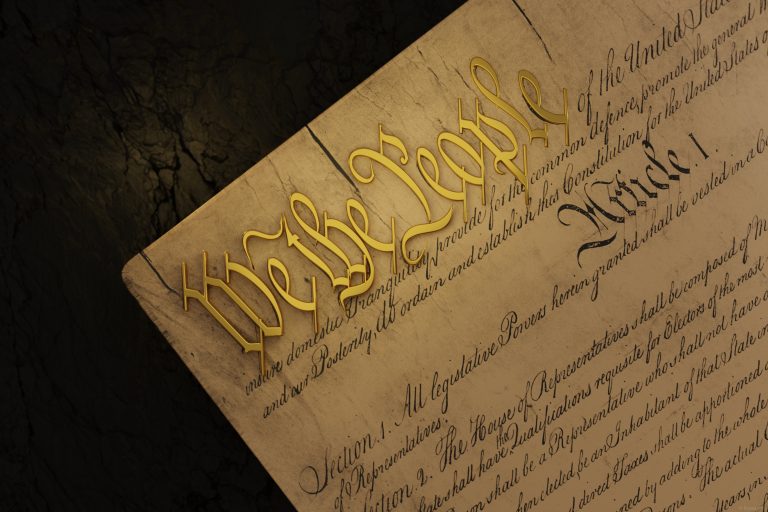 We the People of the United Stat
insure domestic Tranquility, provide for the common defence, promote the general
and our Posterity, do ordain and establish this Constitution for the United States of
Article I.
Section 1. All legislative Powers herein granted shall be vested in a
of Representatives.
Section 2. The House of Representatives shall be composed of
shall have the Qualifications requisite for Electors of the most
shall be a Representative who shall not have
when elected be an Inhabitant of that State in
Taxes shall be apportioned
by adding to the whole
The actual
Years, in